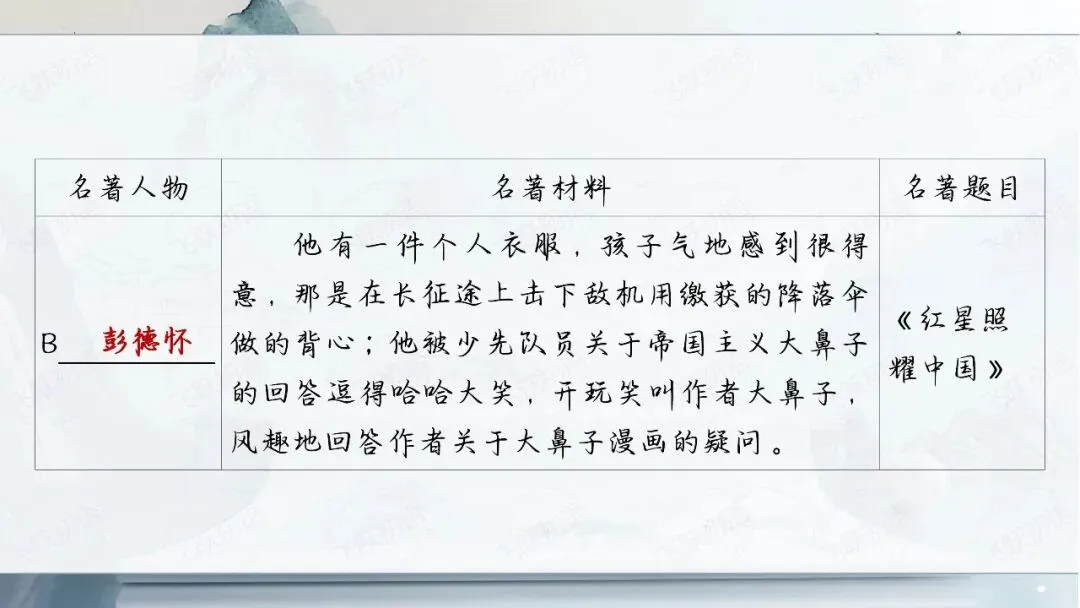 名著人物
名著材料
名著题目
B 彭德怀
他有一件个人衣服，孩子气地感到很得
意，那是在长征途上击下敌机用缴获的降落伞
做的背心；他被少先队员关于帝国主义大鼻子
的回答逗得哈哈大笑，开玩笑叫作者大鼻子，
风趣地回答作者关于大鼻子漫画的疑问。
《红星照
耀中国》